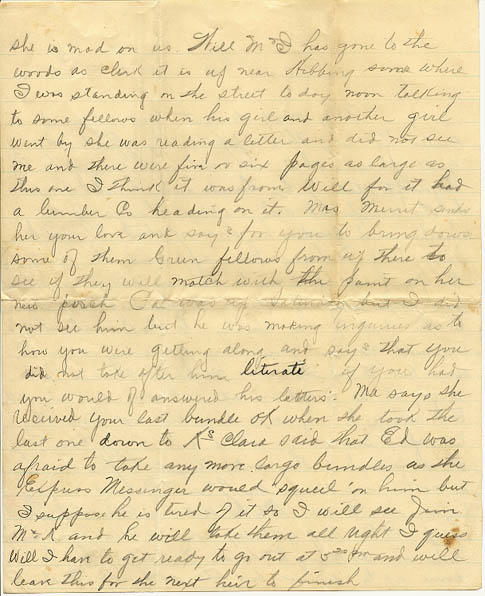 she is mad on us. Will McI has gone to the
woods as clerk it is up near Hibbing some where
I was standing on the street to day noon talking
to some fellows when his girl and another girl
went by she was reading a letter and did not see
me and there were five or six pages as large as
this one I think it was from Will for it had
a lumber Co heading on it. Mas Merrit sends
her your love and says for you to bring down
some of them Green fellows from up there to
see if they will match with the paint on her
new Pat was up Saturday but I did
not see him but he was making inquiries as to
how you were getting along and says that you
did not take after him literate if you had
you would of answered his letters. Ma says she
received your last bundle OK when she took the
last one down to Ks Clara said that Ed was
afraid to take any more large bundles as the
Express Messenger would squeil on him but
I suppose he is tired of it so I will see Jim
McK and he will take them all right I guess
Will I han to get ready to go out at 5 Pm and will
leave this for the next heir to finish